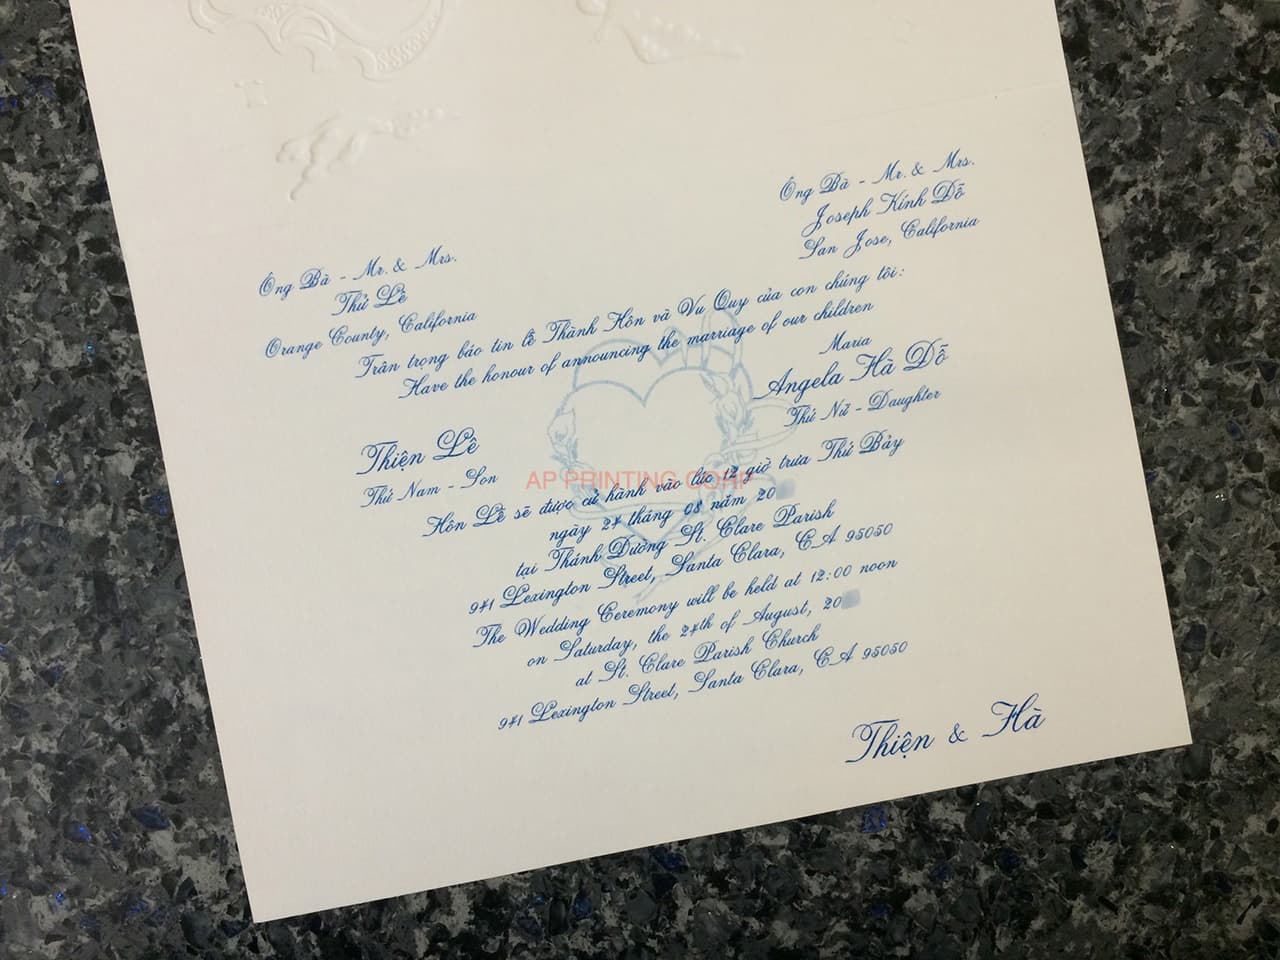 Ông Bà - Mr. & Mrs.
Thứ Lê
Orange County, California
Ông Bà - Mr. & Mrs.
Joseph Kính Đỗ
San Jose, California
Trân trọng báo tin lễ Thành Hôn và Vu Quy của con chúng tôi:
Have the honour of announcing the marriage of our children
Thiện Lê
Thứ Nam - Son
Maria
Angela Hà Đỗ
Thứ Nữ - Daughter
Hôn Lễ sẽ được cử hành vào lúc 12 giờ trưa Thứ Bảy
ngày 24 tháng 08 năm 20
tại Thánh Đường St. Clare Parish
941 Lexington Street, Santa Clara, CA 95050
The Wedding Ceremony will be held at 12:00 noon
on Saturday, the 24th of August, 20
at St. Clare Parish Church
941 Lexington Street, Santa Clara, CA 95050
Thiện & Hà
AP PRINTING CORP